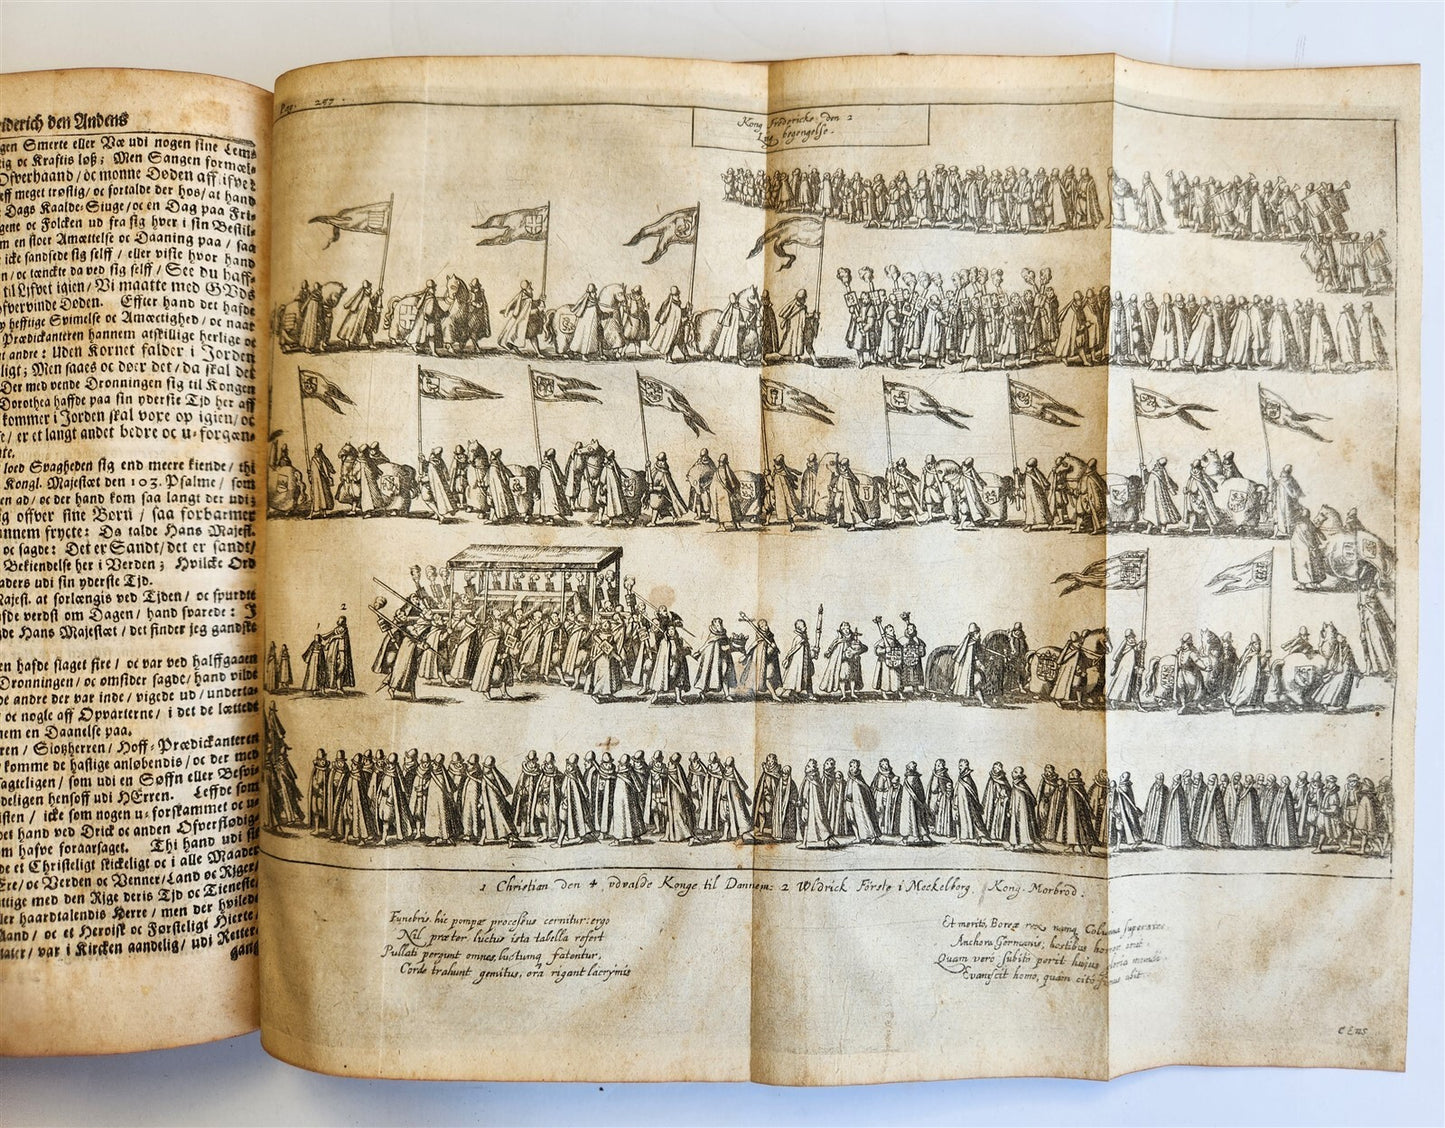 riderich den Andens
gen Smerte eller Væ udi nogen sine Lem-
tig oc Kraftis løß; Men Sangen formæl-
Ofverhaand / oc monne Døden aff
eff meget trøstig / oc fortalde der hos / at hand
Dags Kaalde-Siuge / oc en Dag paa Fri-
gene oc Folcken ud fra sig hver i sin Bestil-
m en stoer Amættelse oc Daaning paa / saa
icke sandsede sig selff / eller viste hvor hand
n / oc tænckte da ved sig selff / See du haff-
til Lifvet igien / Vi maatte med GUds
ofvervinde Døden. Effter hand det hafde
hefftige Svimelse oc Amæctighed / oc naar
Prædickanteren hannem atskillige herlige oc
t andre: Uden Kornet falder i Jorden
ligt; Men saaes oc døer det / da skal det
Der med vende Dronningen sig til Kongen
Dorothea haffde paa sin yderste Tjd her aff
kommer i Jorden skal voxe op igien / oc
/ er et langt andet bedre oc u-forgæn-
te.
loed Svagheden sig end meere kiende / thi
Kongl. Majestæt den 103. Psalme / som
en ad / oc der hand kom saa langt der udi;
ig offver sine Børn / saa forbarmer
annem frycte: Da talde Hans Majest.
oc sagde: Det er Sandt / det er sandt /
Bekiendelse her i Verden; Hvilcke Ord
aders udi sin yderste Tjd.
Majest. at forlængis ved Tjden / oc spurdte
fde verdst om Dagen / hand svarede: J
gde Hans Majestæt / det finder jeg gandske
en hafde slaget fire / oc var ved halffgaaen
Dronningen / oc omsider sagde / hand vilde
e andre der var inde / vigede ud / underta-
/ oc nogle aff Opvarterne / i det de lættede
nem en Daanelse paa.
ren / Slotzherren / Hoff-Prædickanteren
komme de hastige anløbendis / oc der med
agteligen / som udi en Søffn eller Besvi-
deligen hensoff udi HErren. Leffde som
isten / icke som nogen u-forskammet oc u-
et hand ved Drick oc anden Ofverflødig-
m hafve foraarsaget. Thi hand udi sit
de et Christeligt skickeligt oc i alle Maader
Ere / oc Verden oc Venner / Land oc Riger /
ttige med den Rige deris Tjd oc Tieneste /
ler haardtalendis Herre / men der hvilede
Aand / oc et Heroisk oc Førsteligt Hierte /
/ var i Kircken aandelig / udi Retter-
gang
Pag. 257.
Kong Frederichs den 2
Lyg begengelse.
1
2
1 Christian den 4 udvalde Konge til Dannem: 2 Wldrick Förste i Meckelborg, Kong. Morbrod.
Funebris hic pompæ processus cernitur: ergo
Nil præter luctus ista tabella refert
Pullati pergunt omnes, luctumq fatentur,
Corde trahunt gemitus, ora rigant lacrymis
Et merito, Boreæ rex namq Columna superstes
Anchora Germanis, hostibus horror erat.
Quam vero subito perit hujus gloria mundi
Evanscit homo, quàm citò fumus abit.